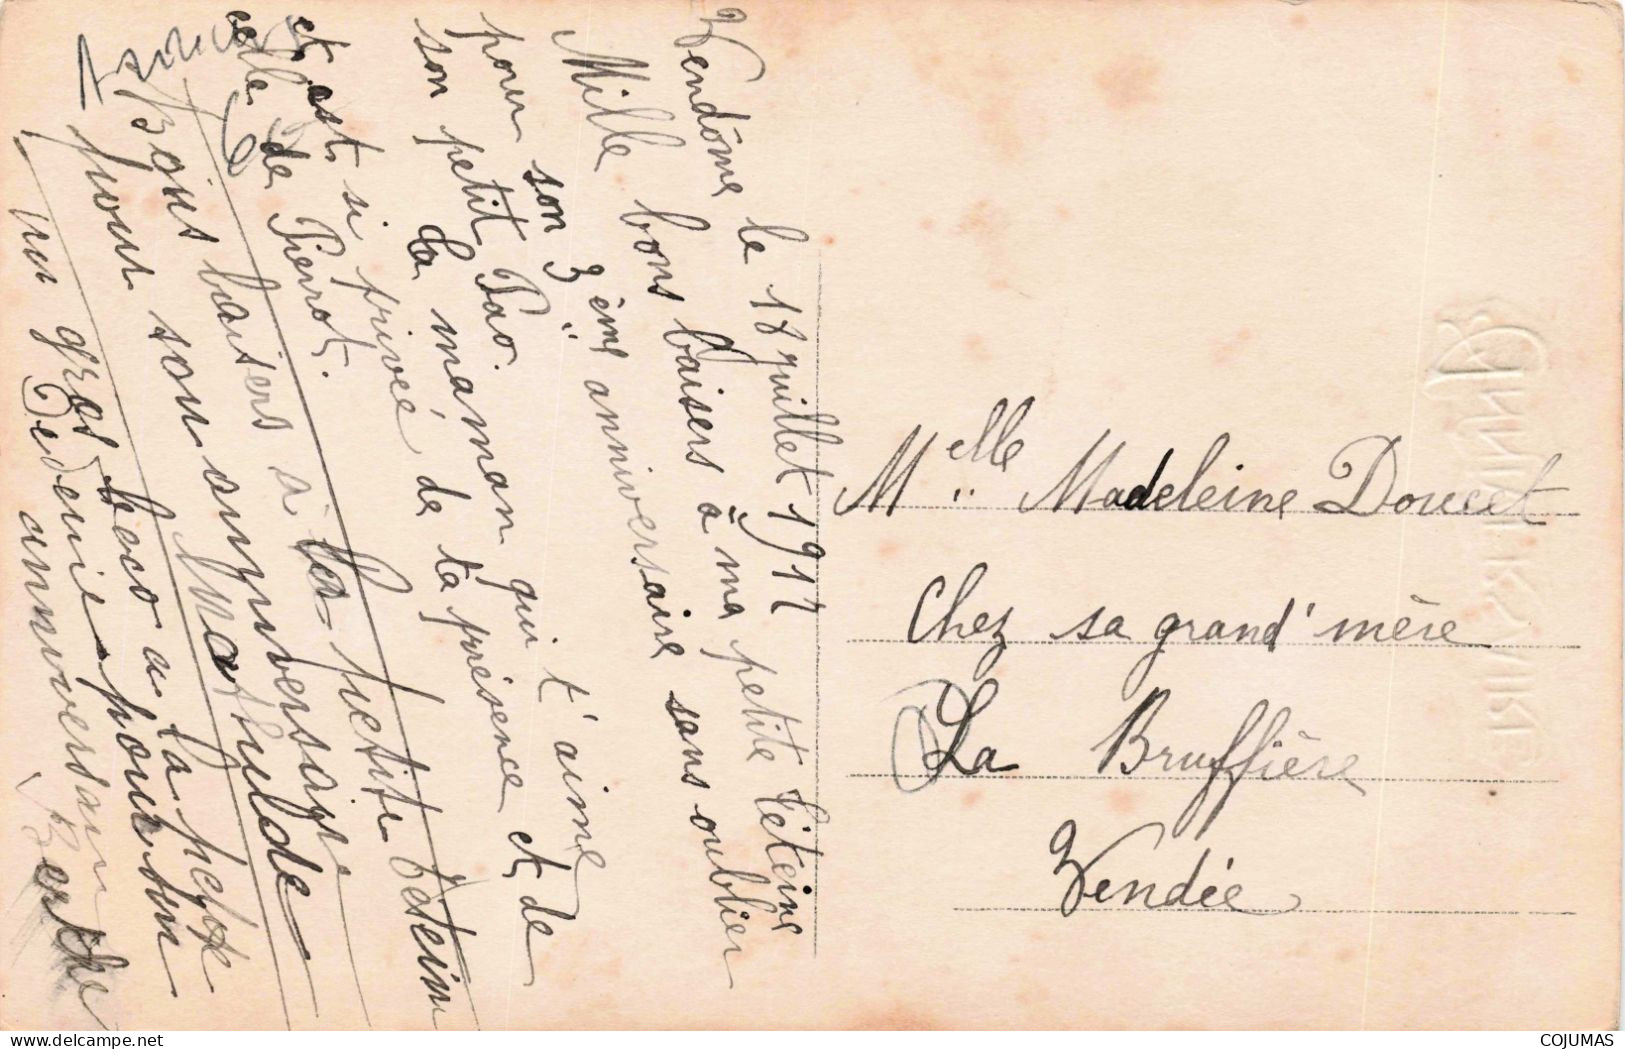 Vendôme le 18 juillet 1912
Mille bons baisers à ma petite Téteine
pour son 3ème anniversaire sans oublier
son petit Pao.
La maman qui t'aime
et est si privée de ta présence et de
celle de Pierrot.
Bons baisers à la petite Tétein
pour son anniversaire
Mathilde
un gros beco a ta
pour son
anniversaire
Berthe
Melle Madeleine Doucet
Chez sa grand'mère
La Bruffière
Vendée
COJUMAS